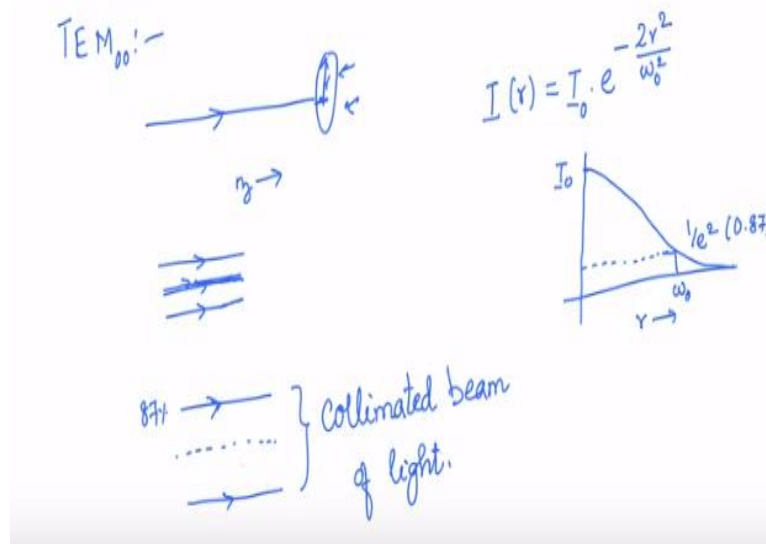 TEM₀₀:-
r
z →
I(r) = I₀ . e^{-2r²/ω₀²}
I₀
1/e² (0.87
ω₀
r →
87%
collimated beam
of light.